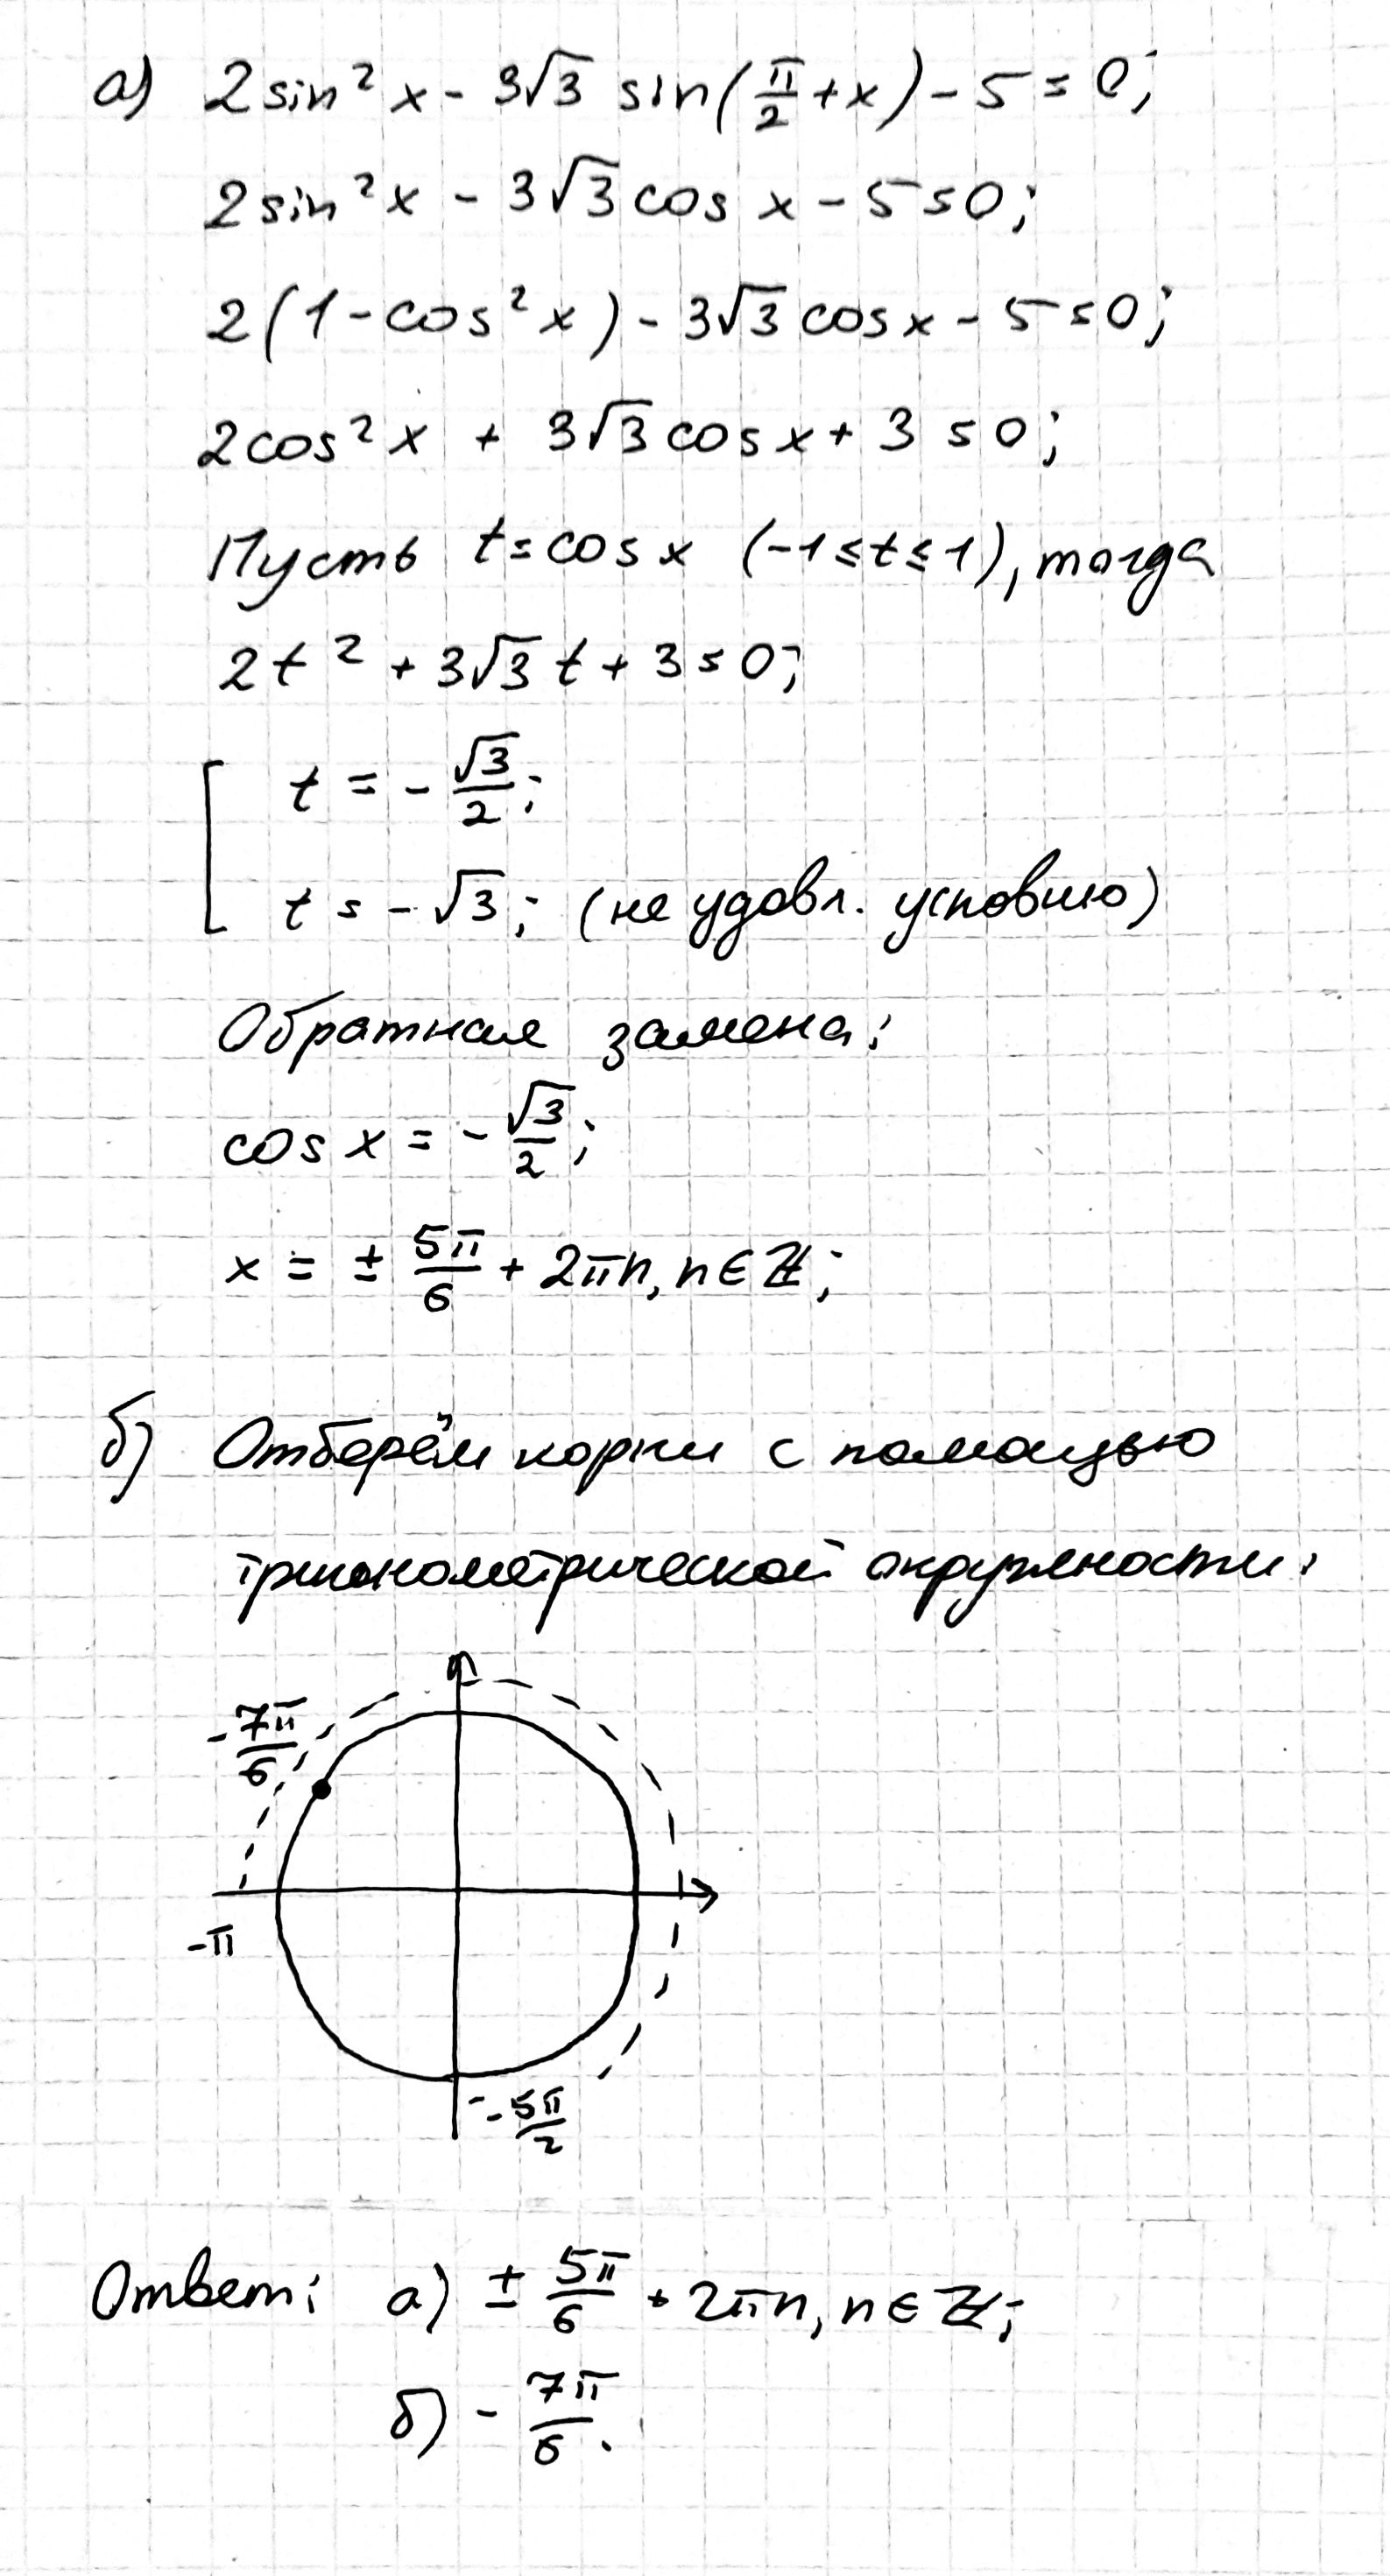 а) 2sin²x - 3√3 sin(π/2 + x) - 5 = 0;
2sin²x - 3√3 cos x - 5 = 0;
2(1 - cos²x) - 3√3 cos x - 5 = 0;
2cos²x + 3√3 cos x + 3 = 0;
Пусть t = cos x (-1 ≤ t ≤ 1), тогда
2t² + 3√3 t + 3 = 0;
t = -√3/2;
t = -√3; (не удовл. условию)
Обратная замена:
cos x = -√3/2;
x = ± 5π/6 + 2πn, n ∈ ℤ;
б) Отберём корни с помощью
тригонометрической окружности:
-7π/6
-π
-5π/2
Ответ: а) ± 5π/6 + 2πn, n ∈ ℤ;
б) -7π/6.